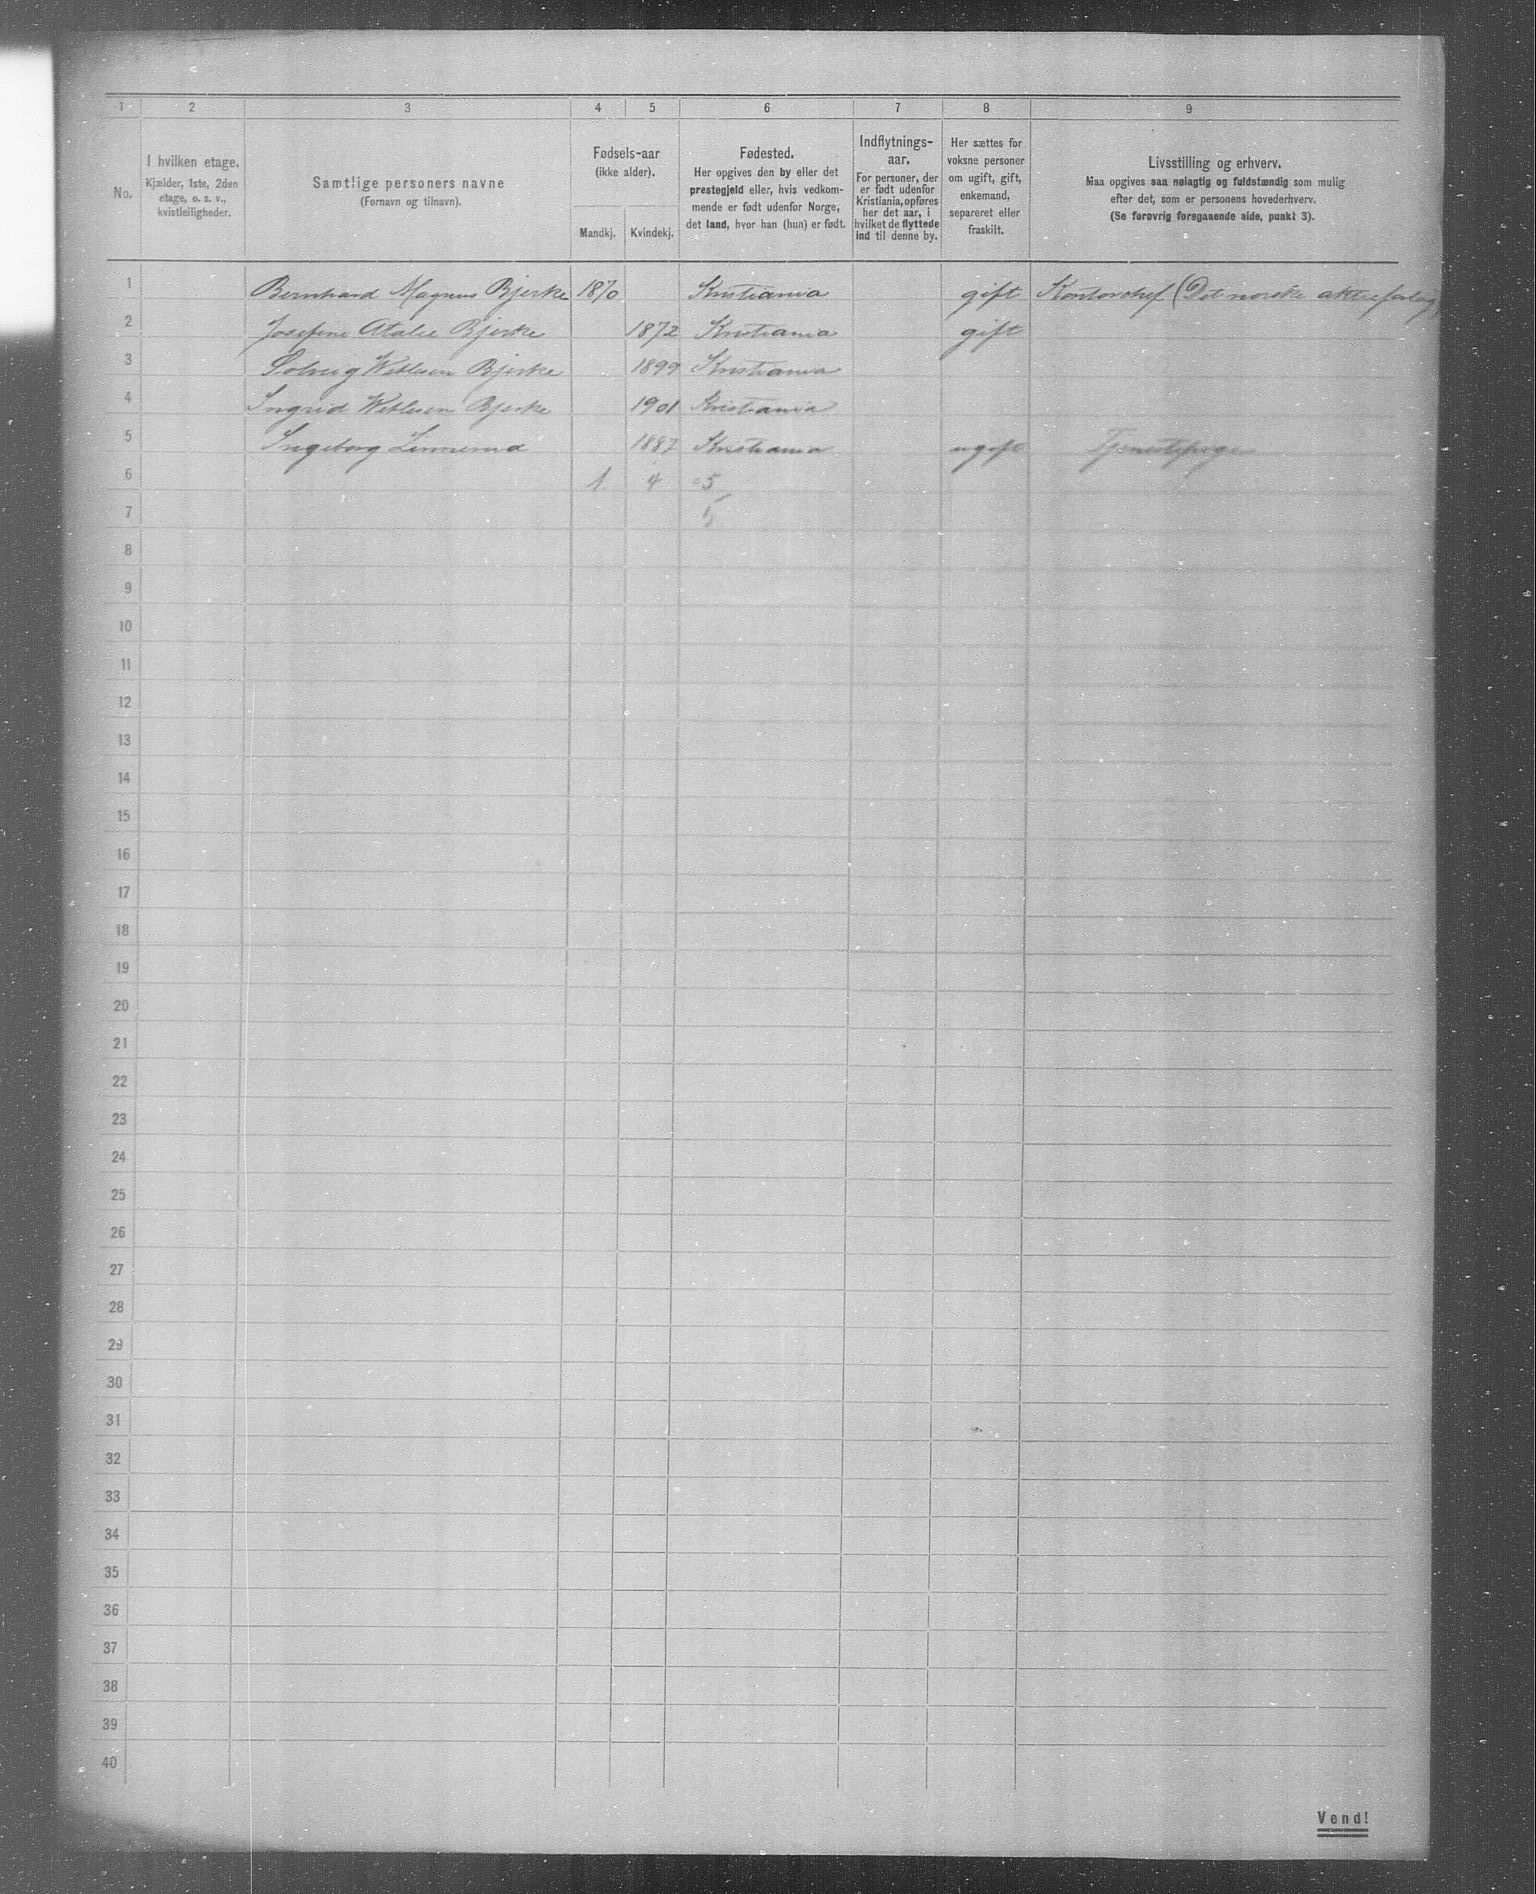 1 2 3 4 5 6 7 8 9
No.
I hvilken etage.
Kjælder, 1ste, 2den
etage, o. s. v.,
kvistleiligheder.
Samtlige personers navne
(Fornavn og tilnavn).
Fødsels-aar
(ikke alder).
Mandkj. Kvindekj.
Fødested.
Her opgives den by eller det
prestegjeld eller, hvis vedkom-
mende er født udenfor Norge,
det land, hvor han (hun) er født.
Indflytnings-
aar.
For personer, der
er født udenfor
Kristiania, opføres
her det aar, i
hvilket de flyttede
ind til denne by.
Her sættes for
voksne personer
om ugift, gift,
enkemand,
separeret eller
fraskilt.
Livsstilling og erhverv.
Maa opgives saa nøiagtig og fuldstændig som mulig
efter det, som er personens hovederhverv.
(Se forøvrig foregaaende side, punkt 3).
1 Bernhard Magnus Bjerke 1870 Kristiania gift Kontorchef (Det norske aktieforlag)
2 Josefine Atalie Bjerke 1872 Kristiania gift
3 Solveig Bjerke 1899 Kristiania
4 Ingrid Bjerke 1901 Kristiania
5 Ingeborg Linnerud 1887 Kristiania ugift Tjenestepige
6 1 4 =5
7
8
9
10
11
12
13
14
15
16
17
18
19
20
21
22
23
24
25
26
27
28
29
30
31
32
33
34
35
36
37
38
39
40
Vend!